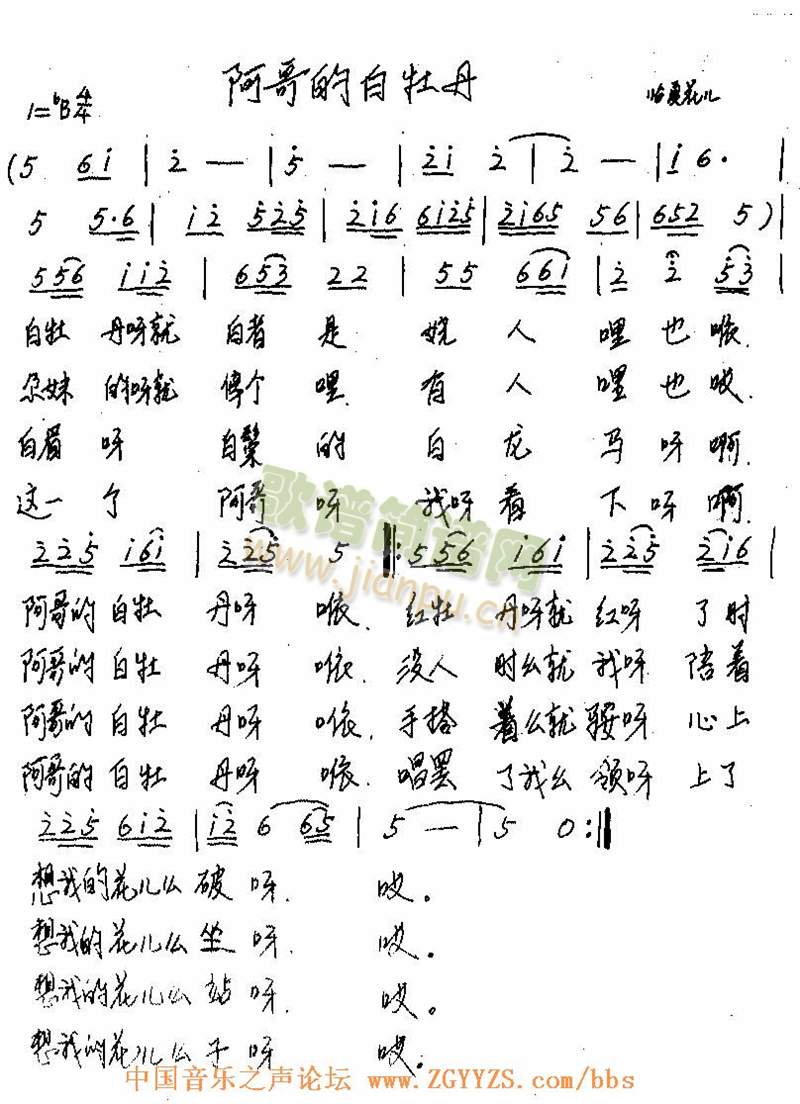 阿哥的白牡丹
1=♭B 4/4
临夏花儿
(5 6i | 2 — | 5 — | 2i 2 | 2 — | i 6· |
5 5·6 | i2 525 | 2i6 6i25 | 2i65 56 | 652 5) |
556 ii2 | 653 22 | 55 66i | 2 2 53 |
白牡 丹呀就 白者 是 娆 人 哩也 咳.
尕妹 的呀就 俜个 哩 有 人 哩也 哎.
白眉 呀 白鬃 的 白 龙 马呀 啊.
这一个 阿哥 呀 我呀看 下呀 啊.
225 i6i | 225 5 |: 556 i6i | 225 2i6 |
阿哥的 白牡 丹呀 咳. 红牡 丹呀就 红呀 了时
阿哥的 白牡 丹呀 咿. 没人 时么就 我呀 陪着
阿哥的 白牡 丹呀 咿. 手搭 着么就 鞍呀 心上
阿哥的 白牡 丹呀 咿. 唱罢 了我么 领呀 上了
225 6i2 | i2 6 65 | 5 — | 5 0 :||
想我的花儿么 破 呀. 哎。
想我的花儿么 坐 呀. 哎。
想我的花儿么 站 呀. 哎。
想我的花儿么 子 呀 哎.
歌谱简谱网
www.jianpu.cn
中国音乐之声论坛 www.ZGYYZS.com/bbs